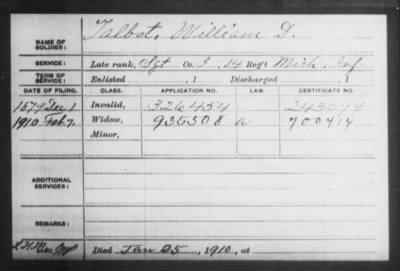 NAME OF SOLDIER: Talbot, William D.
SERVICE: Late rank, Sgt Co. I, 14 Reg't Mich. Inf.
TERM OF SERVICE: Enlisted , 1 Discharged , 1
DATE OF FILING. CLASS. APPLICATION NO. LAW. CERTIFICATE NO.
1879 Dec 1 Invalid, 326454 243099
1910 Feb. 7. Widow, 935508 a 700414
Minor,
ADDITIONAL SERVICES:
REMARKS:
Died Jan 25, 1910, at